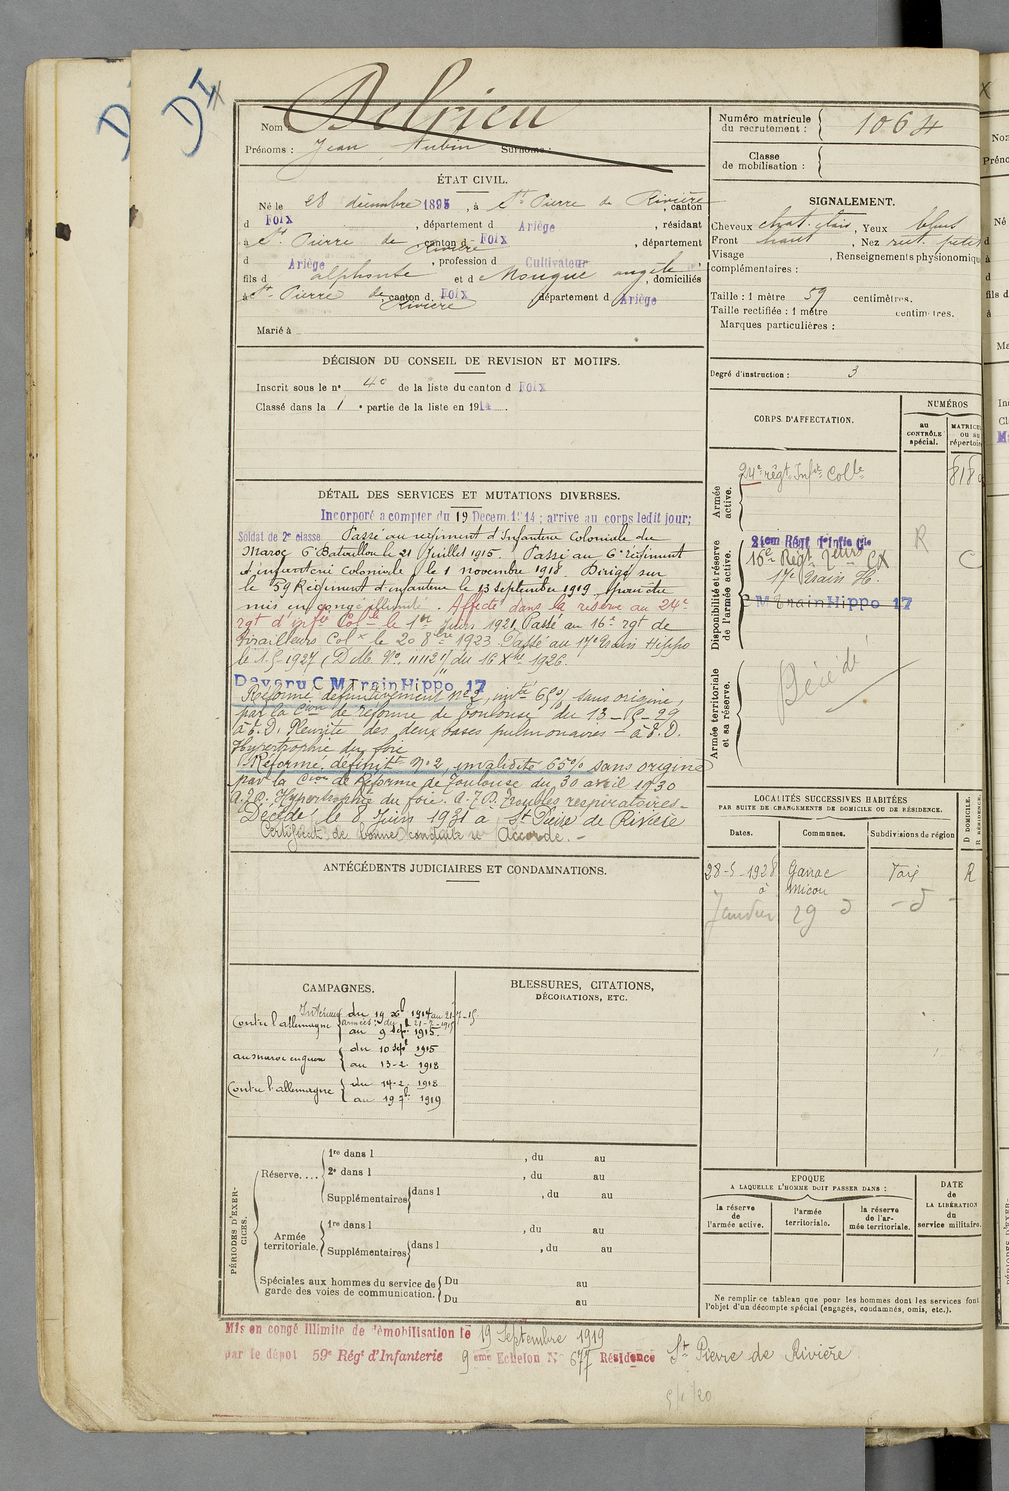 DI
Nom : Delrieu
Prénoms : Jean Aubin Surnome :
ÉTAT CIVIL.
Né le 28 décembre 1895, à St Pierre de Rivière, canton
d Foix, département d Ariège, résidant
à St Pierre de Rivière canton d Foix, département
d Ariège, profession d Cultivateur
fils d alphonse et d Mouque angèle, domiciliés
à St Pierre de Rivière canton d Foix département d Ariège
Marié à
DÉCISION DU CONSEIL DE REVISION ET MOTIFS.
Inscrit sous le n° 40 de la liste du canton d Foix
Classé dans la 1 e partie de la liste en 1914.
DÉTAIL DES SERVICES ET MUTATIONS DIVERSES.
Incorporé a compter du 19 Decem. 1914 ; arrive au corps ledit jour;
Soldat de 2e classe Passé au régiment d'Infanterie Coloniale du
Maroc 6e Bataillon le 21 Juillet 1915. Passé au 6e régiment
d'infanterie coloniale le 1 novembre 1918 Dirigé sur
le 59 Régiment d'infanterie le 13 septembre 1919
mis en congé illimité. Affecté dans la réserve au 24e
rgt d'infie Colle le 1er Juin 1921. Passé au 16e rgt de
tirailleurs Colx le 20 8bre 1923. Passé au 17e Train Hippo
le 1.5.1927 (D.M. No. 11112 du 16 Xbre 1926.
Devenu C M Train Hippo 17
Réformé définitivement No 2, invte 65% sans origine,
par la Cion de réforme de Toulouse du 13-5-29
à E.D. Pleurite des deux bases pulmonaires - à E.D.
Hypertrophie du foie
Réformé définitt No 2, invalidité 65% sans origine
par la Cion de Réforme de Toulouse du 30 avril 1930
Hypertrophie du foie. Troubles respiratoires -
Décédé le 8 Juin 1931 à St Pierre de Rivière
Certificat de bonne conduite Accordé. -
ANTÉCÉDENTS JUDICIAIRES ET CONDAMNATIONS.
CAMPAGNES.
Contre l'allemagne Intérieur du 19 Xbre 1914 au 21-7-15
armées : du 21-7-1915
au 9 sept 1915.
au maroc en guerre du 10 sept 1915
au 13-2 1918
Contre l'allemagne du 14-2 1918
au 19 7bre 1919
BLESSURES, CITATIONS,
DÉCORATIONS, ETC.
PÉRIODES D'EXERCICES.
Réserve.... 1re dans l , du au
2e dans l , du au
Supplémentaires dans l , du au
Armée territoriale. 1re dans l , du au
Supplémentaires dans l , du au
Spéciales aux hommes du service de garde des voies de communication. Du au
Du au
Mis en congé illimité de démobilisation le 19 Septembre 1919
par le dépot 59e Régt d'Infanterie 9 eme Echelon No 677 Résidence St Pierre de Rivière
Numéro matricule du recrutement : 1064
Classe de mobilisation :
SIGNALEMENT.
Cheveux chat. clair, Yeux bleus
Front haut, Nez rect. petit
Visage , Renseignements physionomiqu
complémentaires :
Taille : 1 mètre 59 centimètres.
Taille rectifiée : 1 mètre centimètres.
Marques particulières :
Degré d'instruction : 3
CORPS D'AFFECTATION.
NUMÉROS
au CONTRÔLE spécial.
MATRICU ou au répertoire
Armée active.
24e régt Infie Colle
818
Disponibilité et réserve de l'armée active.
24em Régt d'Infie Cle
16e Régt Tlleurs CX
R
C
17e Train H.
C M Train Hippo 17
Armée territoriale et sa réserve.
Décédé
LOCALITÉS SUCCESSIVES HABITÉES
PAR SUITE DE CHANGEMENTS DE DOMICILE OU DE RÉSIDENCE.
Dates.
Communes.
Subdivisions de région
D DOMICILE.
R RÉSIDENCE.
28-5-1928 Ganac Foix R
à Micou
Janvier 29 d - d -
EPOQUE
A LAQUELLE L'HOMME DOIT PASSER DANS :
la réserve de l'armée active.
l'armée territoriale.
la réserve de l'armée territoriale.
DATE de LA LIBÉRATION du service militaire.
Ne remplir ce tableau que pour les hommes dont les services font
l'objet d'un décompte spécial (engagés, condamnés, omis, etc.).